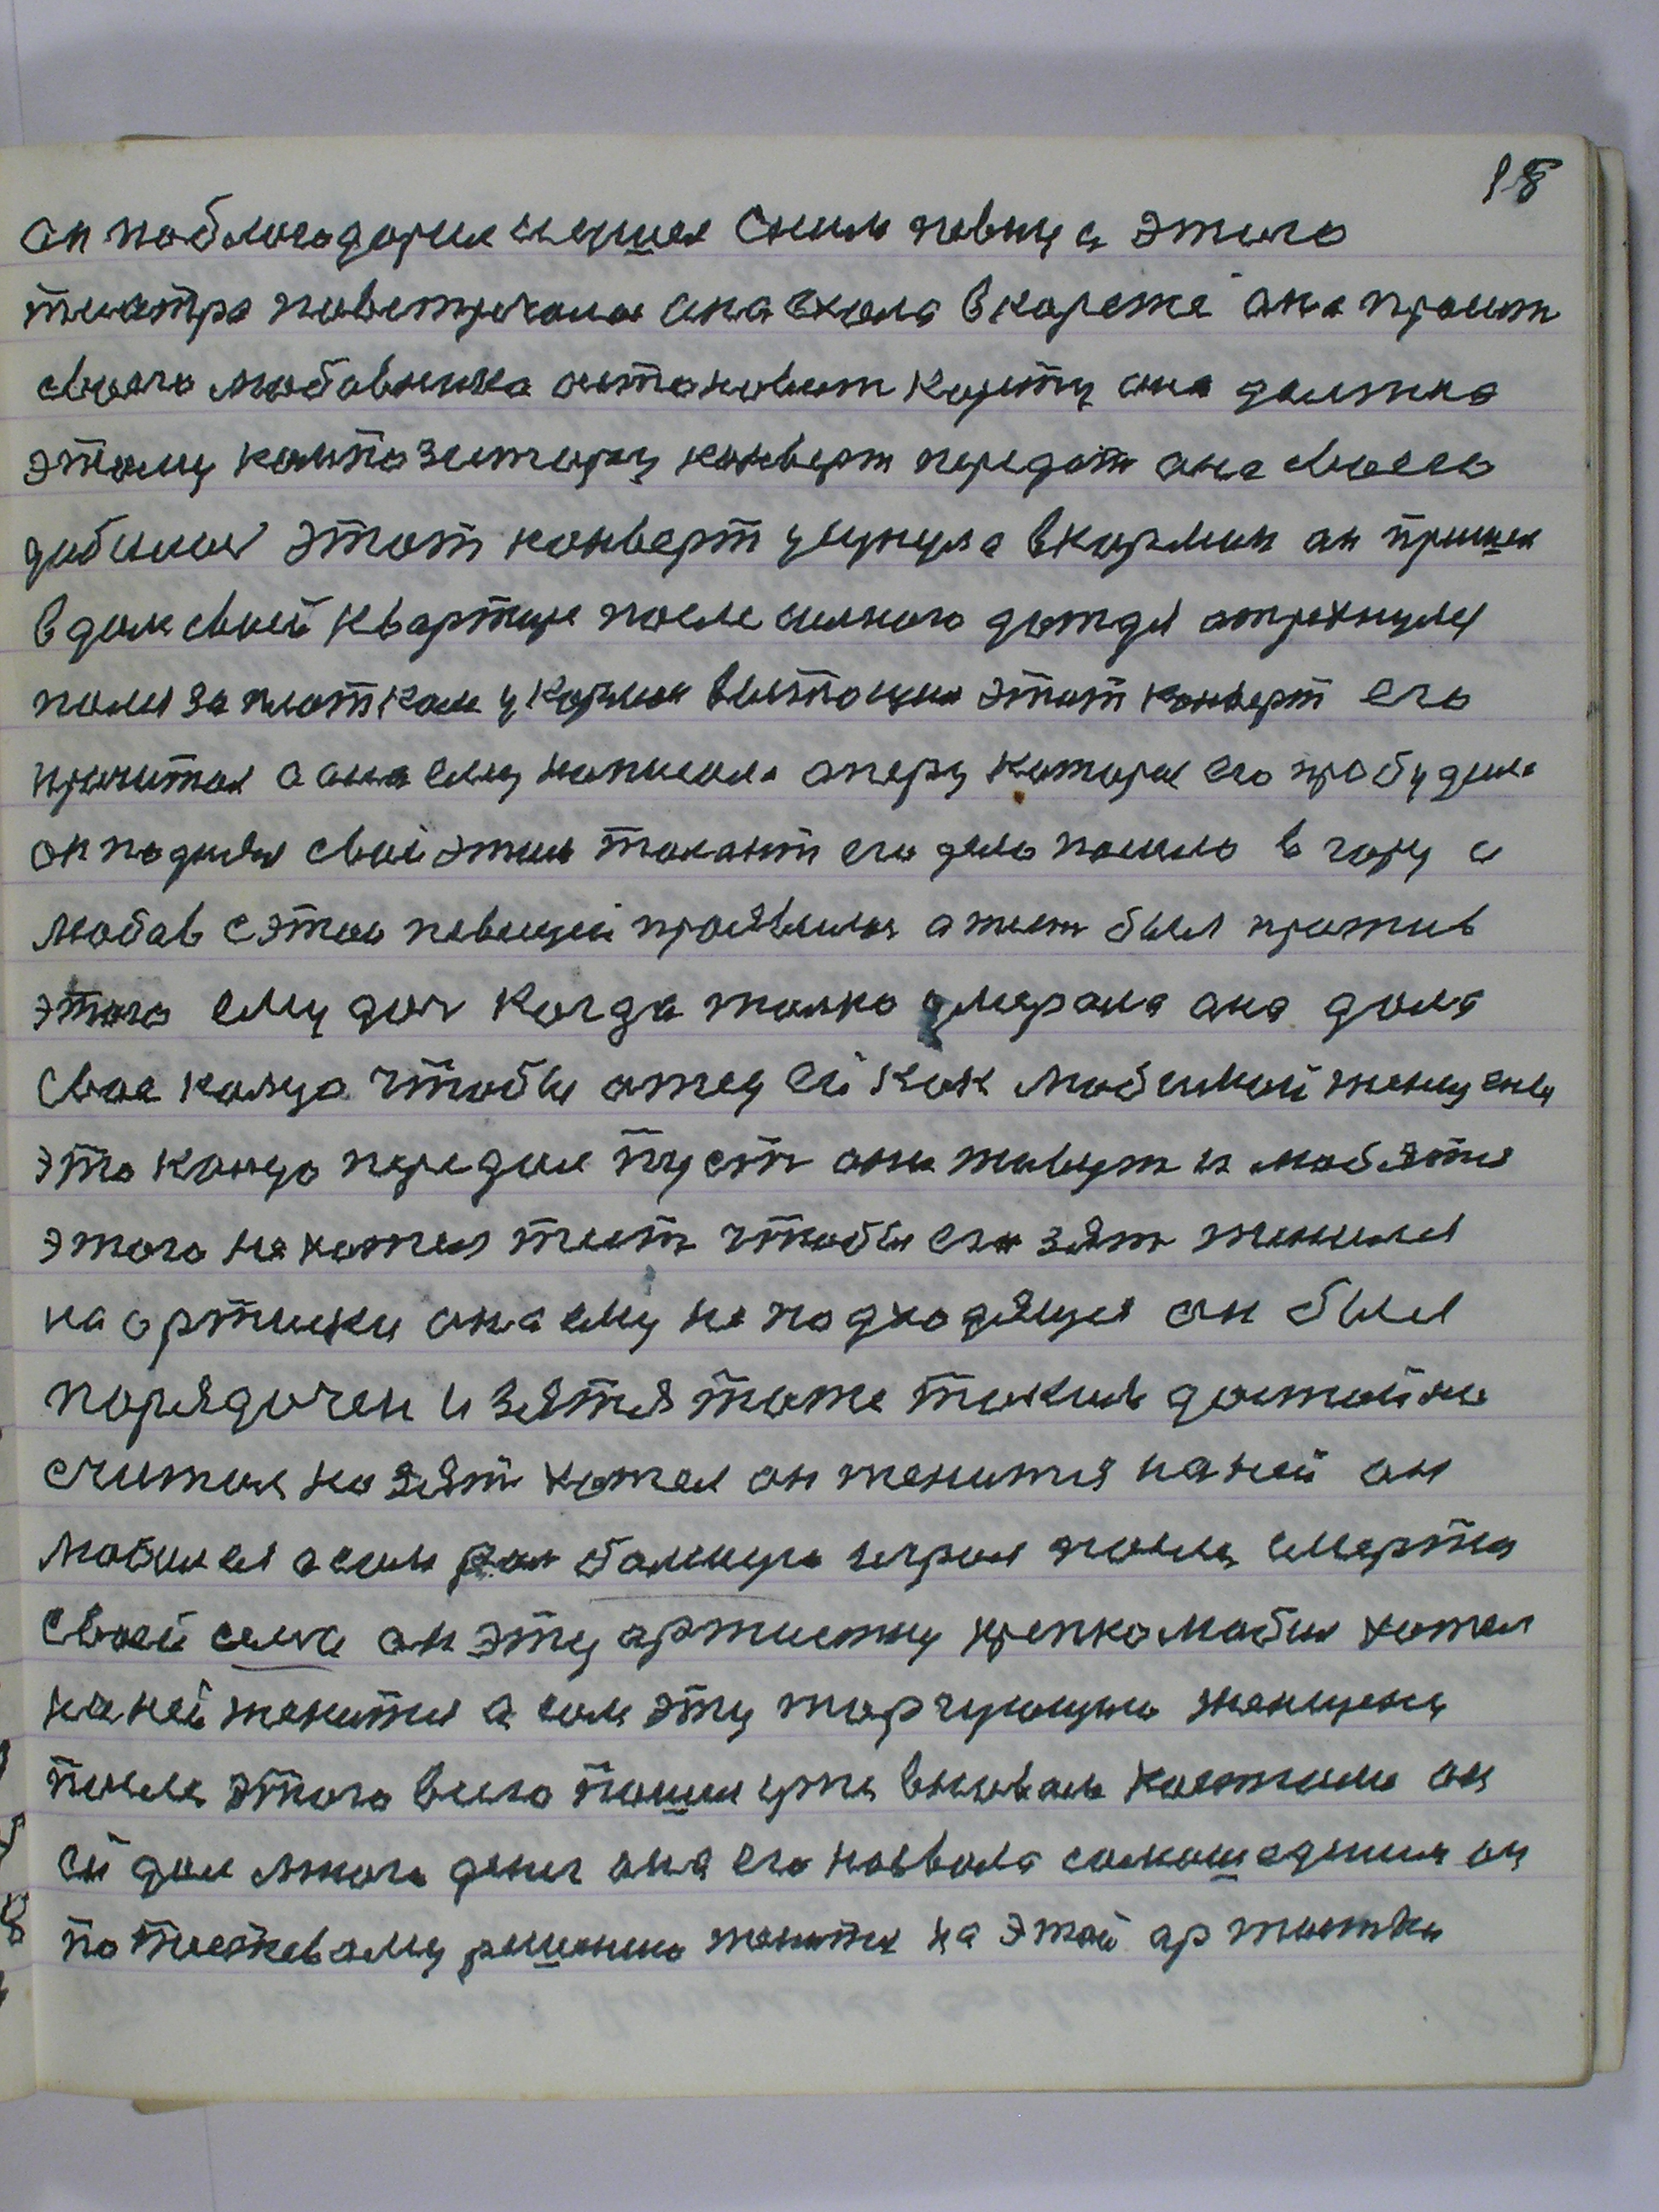 18
Он поблогодарил и ушел Сним певица этого
тиатра повстричалас она ехала вкарете она просит
своего любавника астановит карету она должна
этому композитару конверт передат она своего
добилас этот конверт усунула вкарман он пришел
вдом своей квартире после силного дождя отрехнулся
полез за платком у карман вытощил этот конверт его
прочитал а она ему написала оперу которая его пробудила
он поднял свой этим талант его дело пошло в гору и
любав сэтой певицей проявилас а тест был против
этого ему доч когда толко умерала она дала
свое калцо чтобы атец ей как любимой женщене
это калцо передал пуст они живут и любятся
этого не хотел тест чтобы его зят женился
на артистки она ему не подходящая он был
порядочен и зятя тоже таким достойно
считал но зят хотел он женится на ней он
любил ея а сам рол болшую играл после смерти
своей семи он эту артистку крепко любил хотел
на ней женится а сам эту таргующую женщену
после этого вило пошел уже вновом костюме он
ей дал много денег она его назвала сомошедшим он
по тестевому решению женится на этой артистки